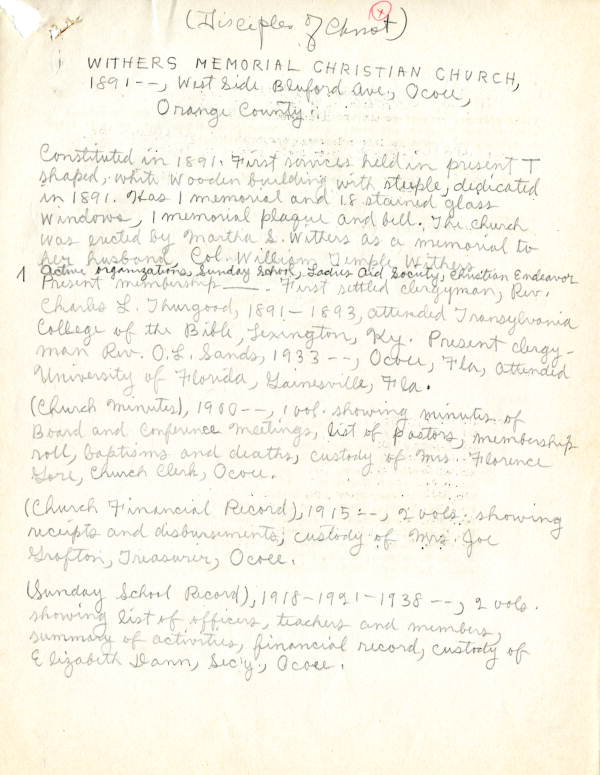 (Disciples of Christ)
x
WITHERS MEMORIAL CHRISTIAN CHURCH,
1891--, West Side Bluford Ave., Ocoee,
Orange County.
Constituted in 1891. First services held in present T
shaped, white wooden building with steeple, dedicated
in 1891. Has 1 memorial and 18 stained glass
windows, 1 memorial plaque and bell. The church
was erected by Martha S. Withers as a memorial to
her husband, Col. William Temple Withers.
1 Active organizations, Sunday School, Ladies Aid Society, Christian Endeavor
Present membership ——. First settled clergyman, Rev.
Charles L. Thurgood, 1891-1893, attended Transylvania
College of the Bible, Lexington, Ky. Present clergy-
man Rev. O.L. Sands, 1933--, Ocoee, Fla, attended
University of Florida, Gainesville, Fla.
(Church Minutes), 1900--, 1 vol. showing minutes of
Board and Conference Meetings, list of pastors, membership
roll, baptisms and deaths, custody of Mrs. Florence
Gore, Church Clerk, Ocoee.
(Church Financial Record), 1915--, 2 vols. showing
receipts and disbursements, custody of Mrs. Joe
Grafton, Treasurer, Ocoee.
(Sunday School Record), 1918-1921-1938--, 2 vols.
showing list of officers, teachers and members,
summary of activities, financial record, custody of
Elizabeth Dann, Sec'y., Ocoee.